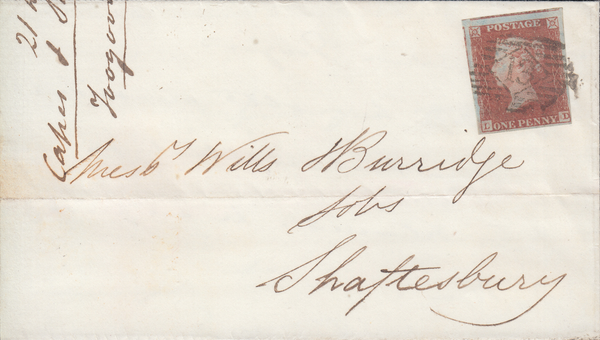 21
Capes & S
Toogoo
POSTAGE
13
ONE PENNY
L D
Messrs Wills & Burridge
Sols
Shaftesbury